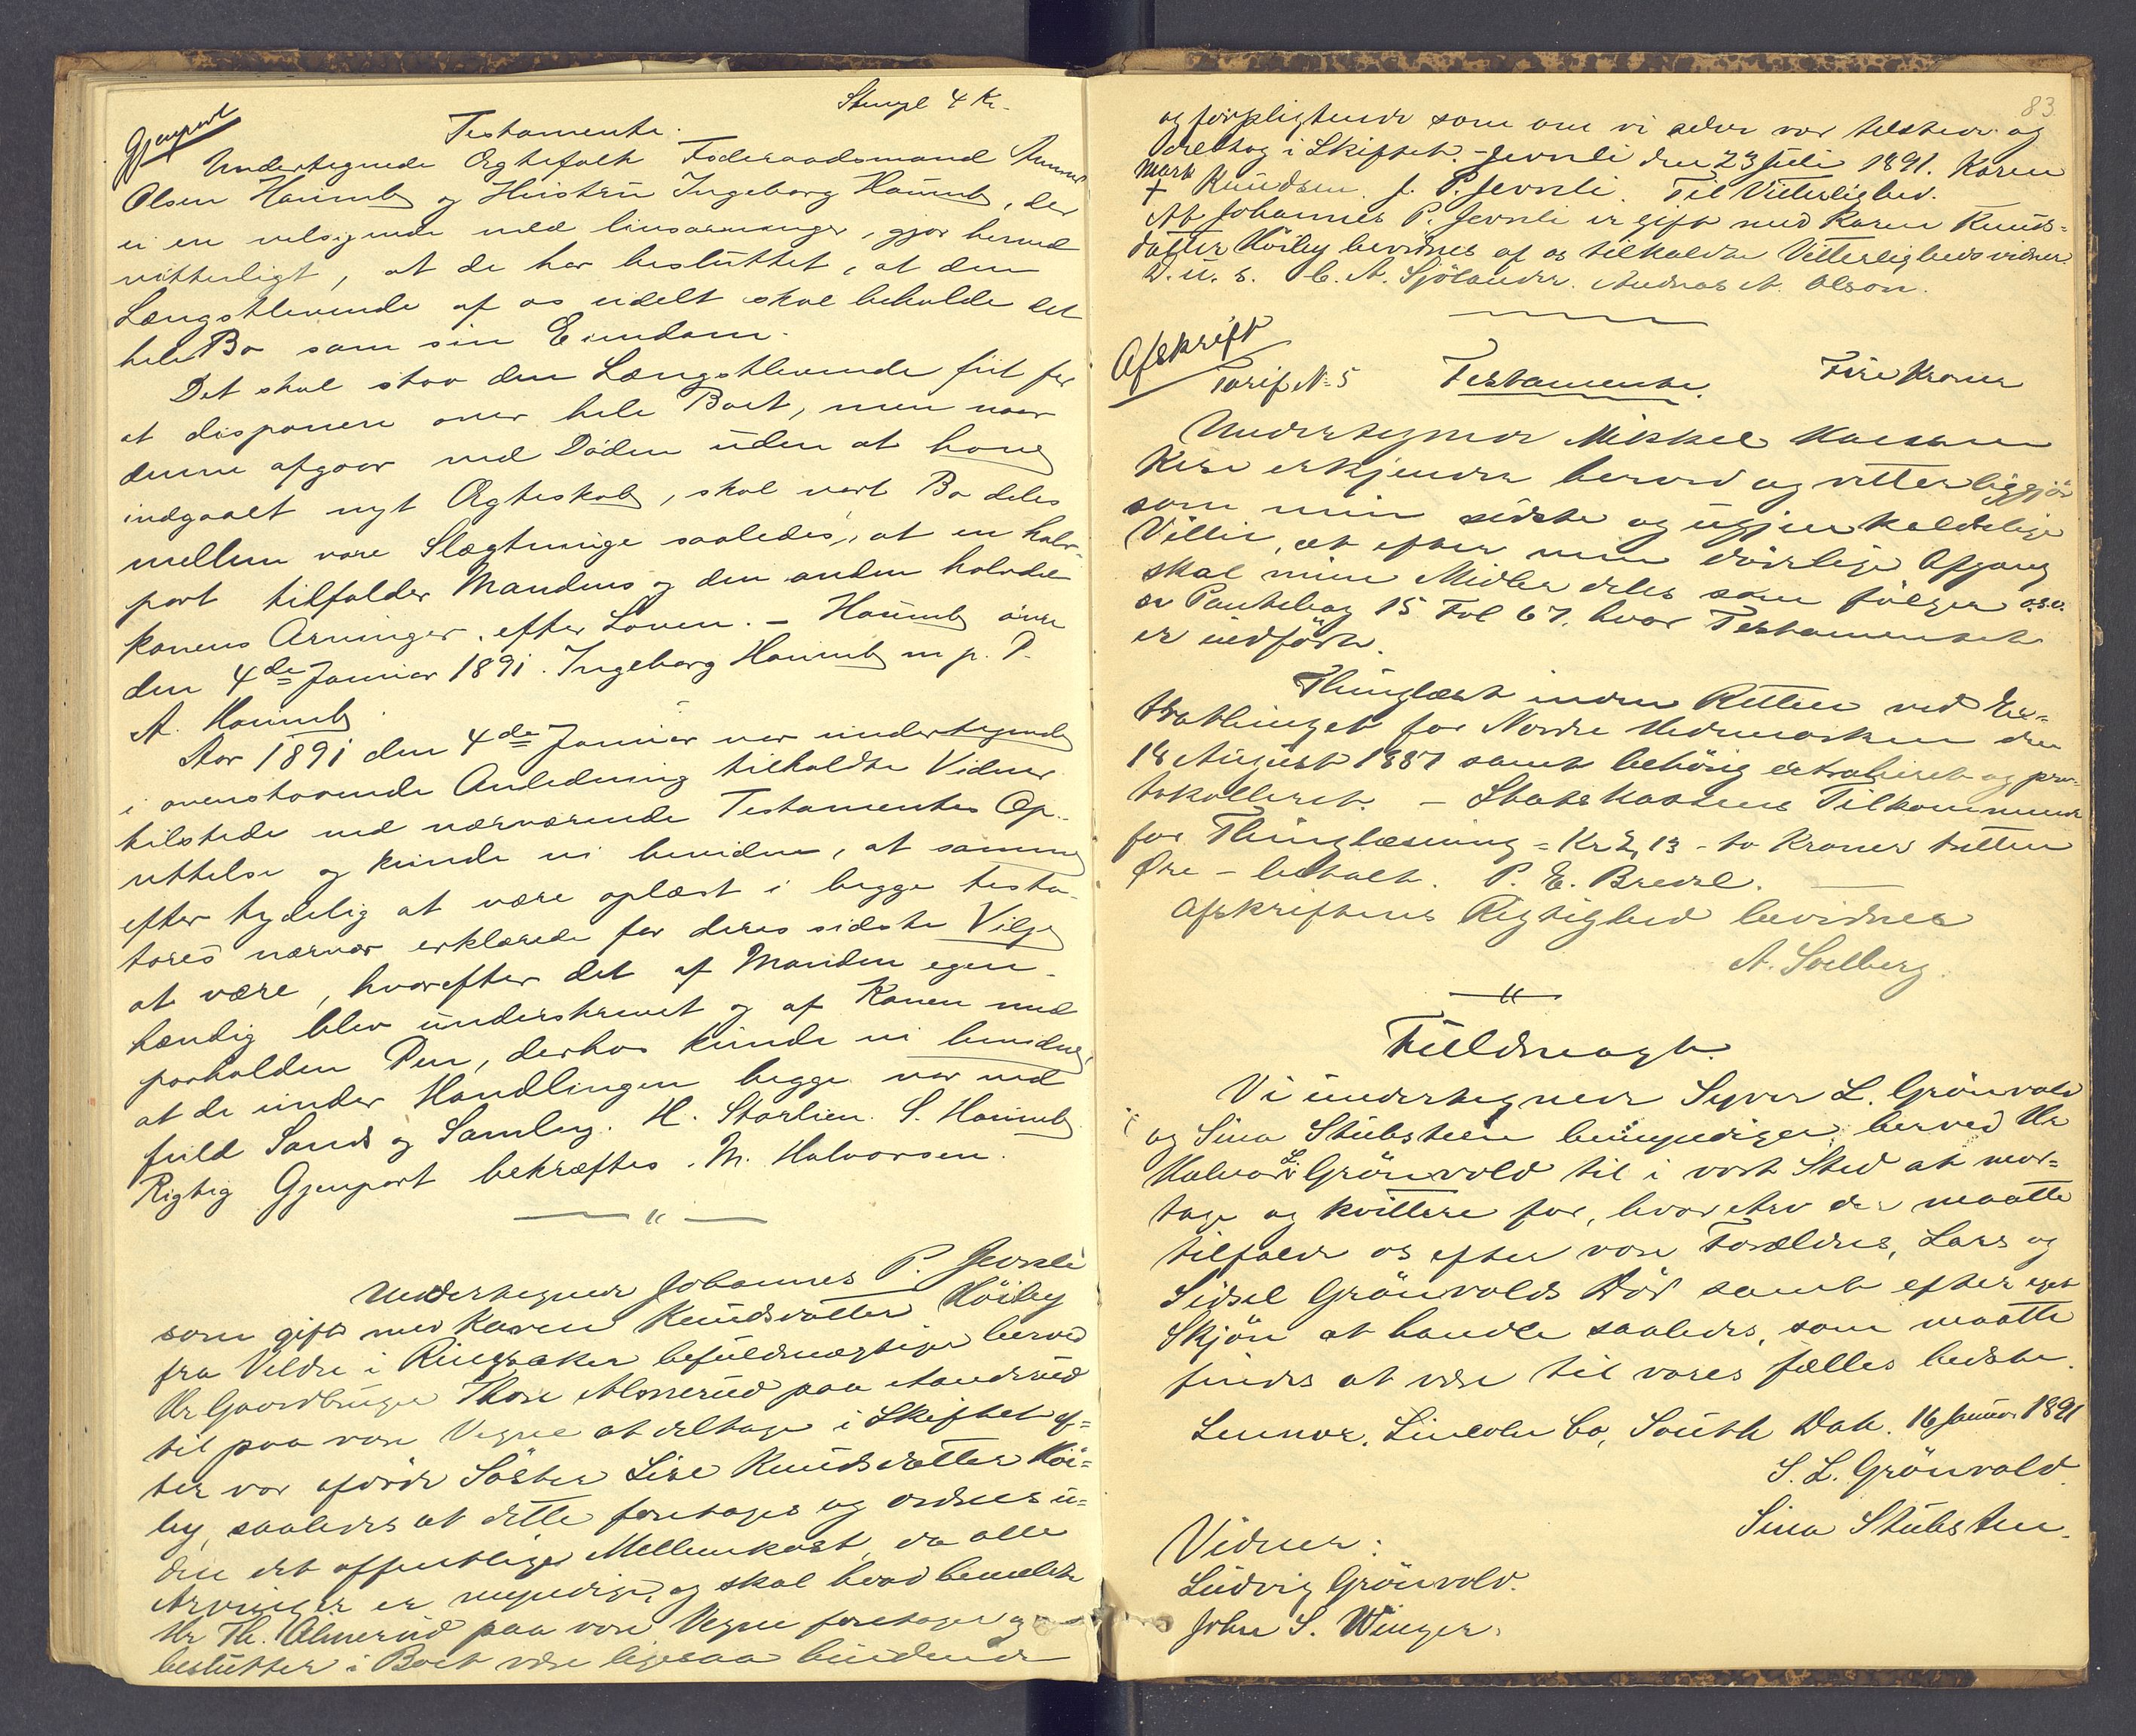 Gjenpart
Stempl 4 Kr.
Testamente.
Undertegnede Ægtefolk Föderaadsmand Amund
Olsen Haümb og Hüstrü Ingeborg Haümb, der
ei en velsignede med livsarvinger, gjör herved
vitterligt, at de har beslüttet, at den
Længstlevende af os üdelt skal beholde det
hele Bo som sin Eiendom.
Det skal staa den Længstlevende frit for
at disponere over hele Boet, men naar
denne afgaar ved Döden üden at have
indgaaet nyt Ægteskab, skal vort Bo deles
mellem vore Slægtninge saaledes, at en halv-
part tilfalder Mandens og den anden halvdel
konens Arvinger, efter Loven. – Haümb övre
den 4de Janüar 1891. Ingeborg Haümb m. p. P.
A. Haümb.
Aar 1891 den 4de Janüar var ündertegnede
i ovenstaaende Anledning tilkaldte Vidner
tilstede ved nærværende Testamentes Op-
rettelse og künde vi bevidne, at samme
efter tydelig at være oplæst i begge testa-
tores nærvær erklærede for deres sidste Vilje
at være, hvorefter det af Manden egen-
hændig blev ünderskrevet og af Konen med
paaholden Pen, derhos künde vi bevidne,
at de ünder Handlingen begge var ved
füld Sands og Samling. H. Storlien. S. Haümb.
Rigtig Gjenpart bekræftes. M. Halvorsen.
Undertegnede Johannes P. Jevnli
som gift med Karen Knüdsdatter Höiby
fra Veldre i Ringsaker befüldmægtiger herved
Hr Gaardbrüger Thore Almerüd paa Aanderüd
til paa vore Vegne at deltage i Skiftet ef=
ter vor afdöde Söster Lise Knüdsdatter Höi=
by, saaledes at dette foretages og ordnes ü=
den det offentliges Mellemkost, da alle
Arvinger er myndige, og skal hvad bemeldte
Hr Th. Almerüd paa vore Vegne foretager og
beslütter i Boet være ligesaa bindende
83
og forpligtende som om vi selve var tilstede og
deltog i Skiftet. – Jevnli den 23 Jüli 1891. Karen
Mark
+ Knüdsen. J. P. Jevnli. Til Vitterlighed.
At Johannes P. Jevnli er gift med Karen Knüds=
datter Höiby bevidnes af os tilkaldte Vitterlighedsvidner.
D. ü. s. C. A. Sjölander. Andreas A. Olson.
Afskrift
Tarif No 5 Testamente. Fire Kroner
Undertegnede Mikkel Hansen
Kise erkjender herved og vitterliggjör
som min sidste og üigjenkaldelige
Villie, at efter min dödelige Afgang
skal mine Midler deles som fölger o.s.v.
se Pantebog 15 Fol 67, hvor Testamentet
er indfört.
Thinglæst inden Retten ved Ex=
trathinget for Nordre Hedemarken den
18 Aügüst 1887 samt behörig extraheret og pro=
tokolleret. – Statskassens Tilkommende
for Thinglæsning = Kr 2,13 – to Kroner tretten
Øre – betalt. P. E. Bredel.
Afskriftens Rigtighed bevidnes
A. Solberg.
Füldmagt.
Vi ündertegnede Syver L. Grönvold
og Sina Stübsteen bemyndiger herved Hr
Halvor L. Grönvold til i vort Sted at mod=
tage og kvittere for, hvad Arv der maatte
tilfalde os efter vore Forældres, Lars og
Sidsel Grönvolds Död samt efter eget
Skjön at handle saaledes, som maatte
findes at være til vores fælles bedste.
Lennox, Lincoln Co, Soüth Dak. 16 Janüar 1891
S. L. Grönvold
Sina Stübsteen.
Vidner:
Lüdvig Grönvold.
John S. Winger.